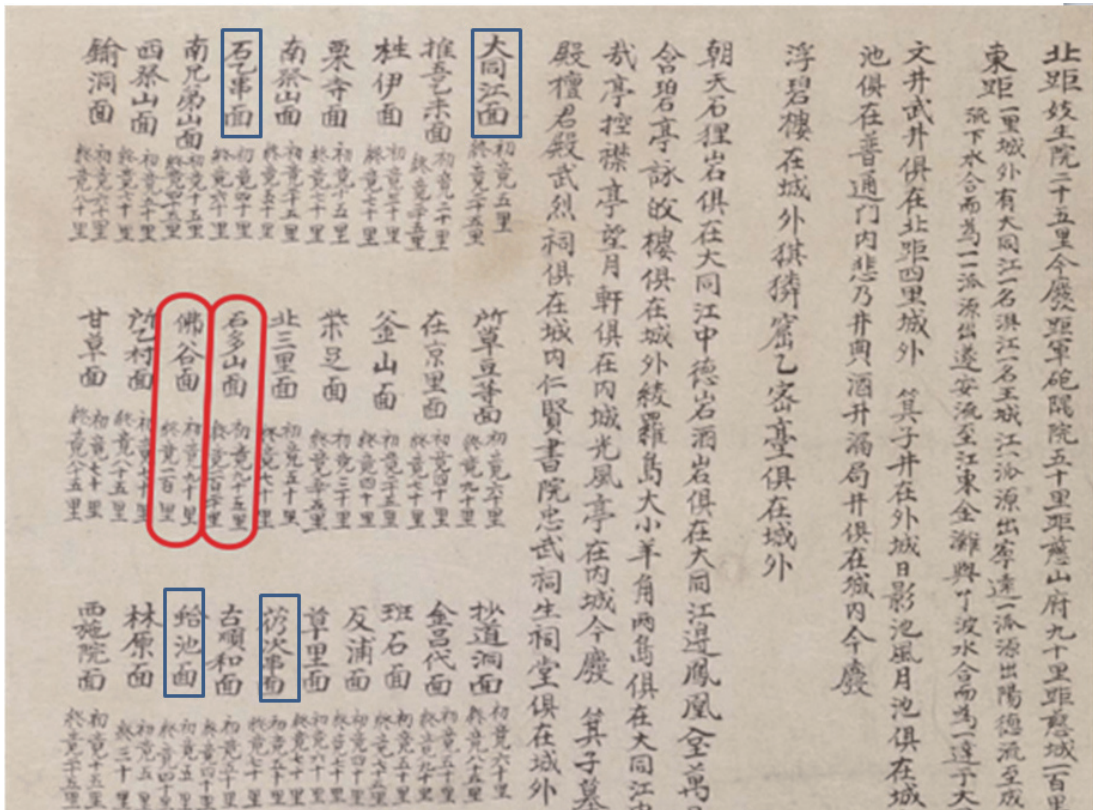 北距妓生院二十五里今廢距軍砲隅院五十里距慈山府九十里距慈城一百里
東距一里城外有大同江一名浿江一名王城江一派源出寧遠一派源出陽德流至成
流下水合而為一一派源出遂安流至江東金灘與丫波水合而為一達于大
文井武井俱在北距四里城外 箕子井在外城日影池風月池俱在城
池俱在普通門内悲乃井典酒井漏局井俱在城内今廢
浮碧樓在城外猉獜窟乙密臺俱在城外
朝天石狸岩俱在大同江中德岩酒岩俱在大同江邊鳳凰臺萬
含碧亭詠皈樓俱在城外綾羅島大小羊角兩島俱在大同江
哉亭控襟亭望月軒俱在内城光風亭在内城今廢 箕子墓
殿檀君殿武烈祠俱在城内仁賢書院忠武祠生祠堂俱在城外
大同江面 初竟五里 終竟二十五里
推吾乙未面 初竟二十里 終竟三十五里
柱伊面 初竟三十里 終竟七十里
栗寺面 初竟十五里 終竟七十里
南祭山面 初竟十五里 終竟五十里
石乙串面 初竟四十里 終竟六十里
南兄弟山面 初竟十五里 終竟四十五里
西祭山面 初竟五十里
鍮洞面 初竟六十里 終竟八十里
所草豆等面 初竟六十里 終竟九十里
在京里面 初竟四十里 終竟七十五里
釜山面 終竟四十里
柴足面 初竟二十里 終竟三十五里
北三里面 初竟五十里 終竟七十里
石多山面 初竟九十五里 終竟一百二十里
佛谷面 初竟九十里 終竟一百里
所乙村面 初竟七十里 終竟八十五里
甘草面 初竟七十里 終竟八十五里
抄道洞面 初竟六十里 終竟八十五里
金呂代面 終竟九十里
班石面 初竟五十里 終竟七十五里
反浦面 初竟四十里 終竟七十里
草里面 初竟六十里 終竟七十里
芿次串面 初竟五十里 終竟七十里
古順和面 初竟二十里 終竟四十里
蛤池面 初竟五里 終竟四十里
林原面 初竟五里 終竟三十里
西施院面 初竟十五里 終竟三十五里